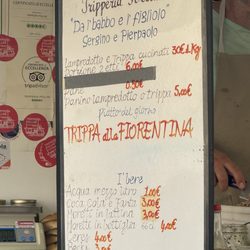 Tripperia
"Da i' babbo e i' figliolo"
Sergino e Pierpaolo
Lampredotto e trippa cucinati 30€ al Kg
Porzione 2 etti 6,00€
Pane 0,50€
Panino lampredotto o trippa 5,00€
piatto del giorno
TRIPPA alla FIORENTINA
I' bere
Acqua mezzo litro 1,00€
Coca Cola e Fanta 3,00€
Moretti in lattina 3,00€
Moretti in bottiglia 66cl 4,00€
4,00€
tripadvisor